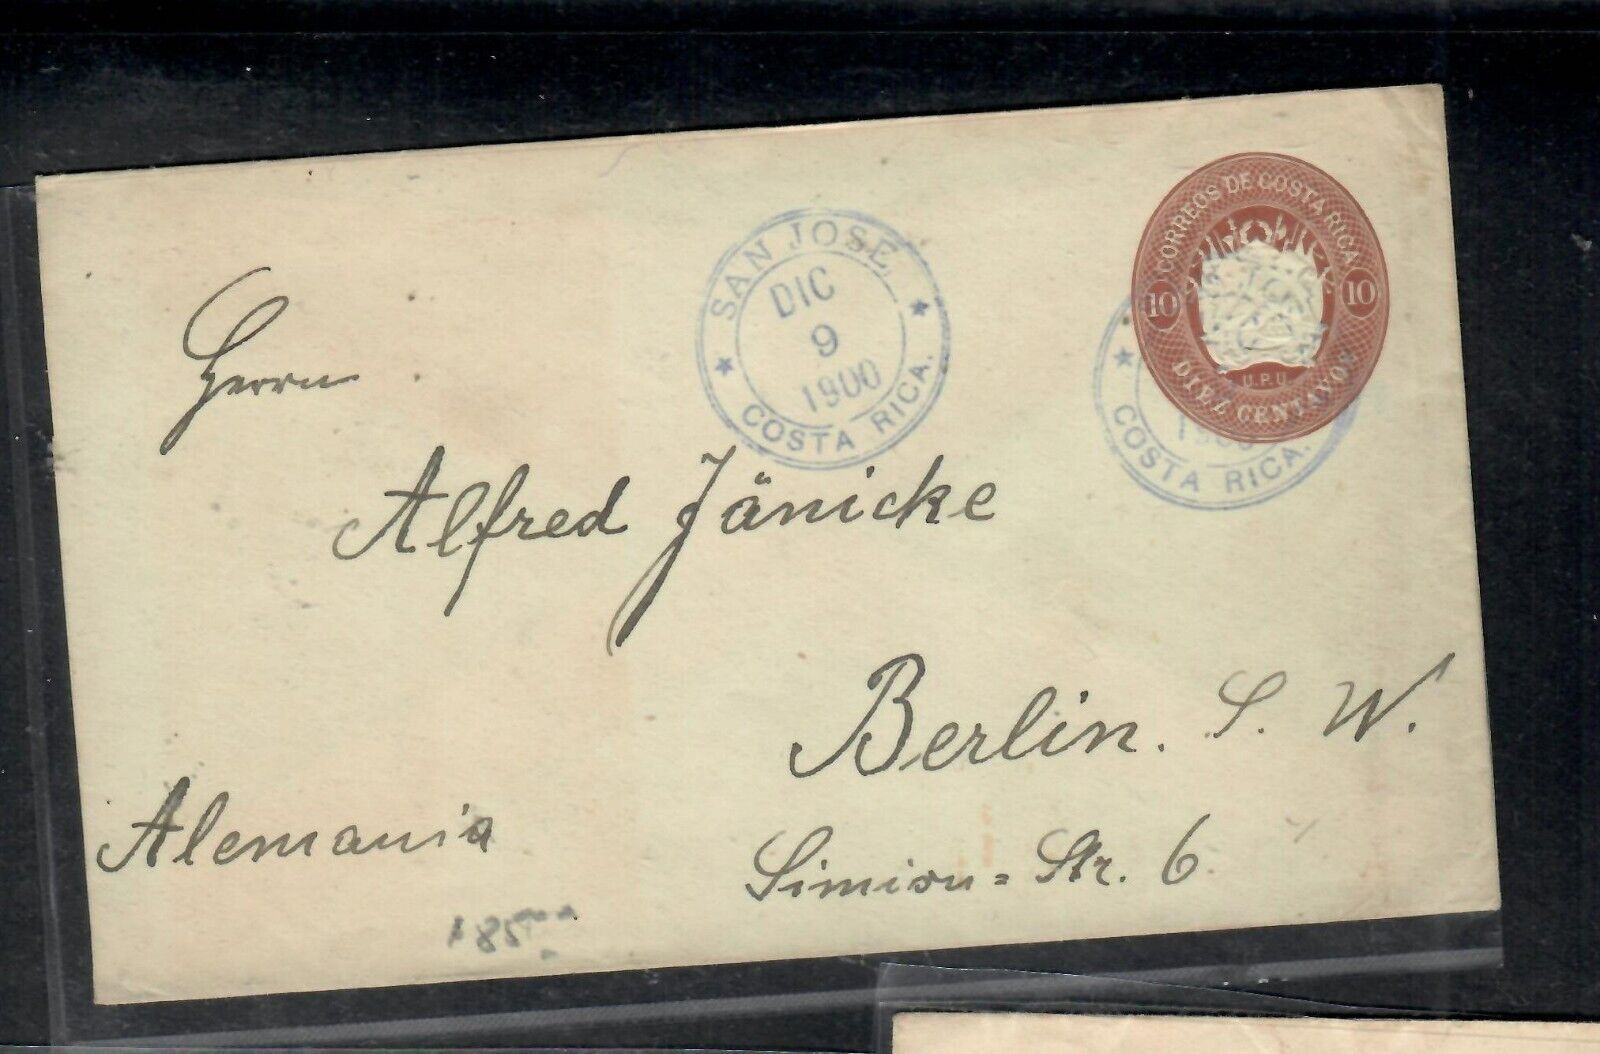 CORREOS DE COSTA RICA
10 10
U.P.U.
DIEZ CENTAVOS
SAN JOSE,
DIC
9
1900
COSTA RICA.
COSTA RICA.
Herrn
Alfred Jänicke
Berlin. S. W.
Alemania
Simion=Str. 6.